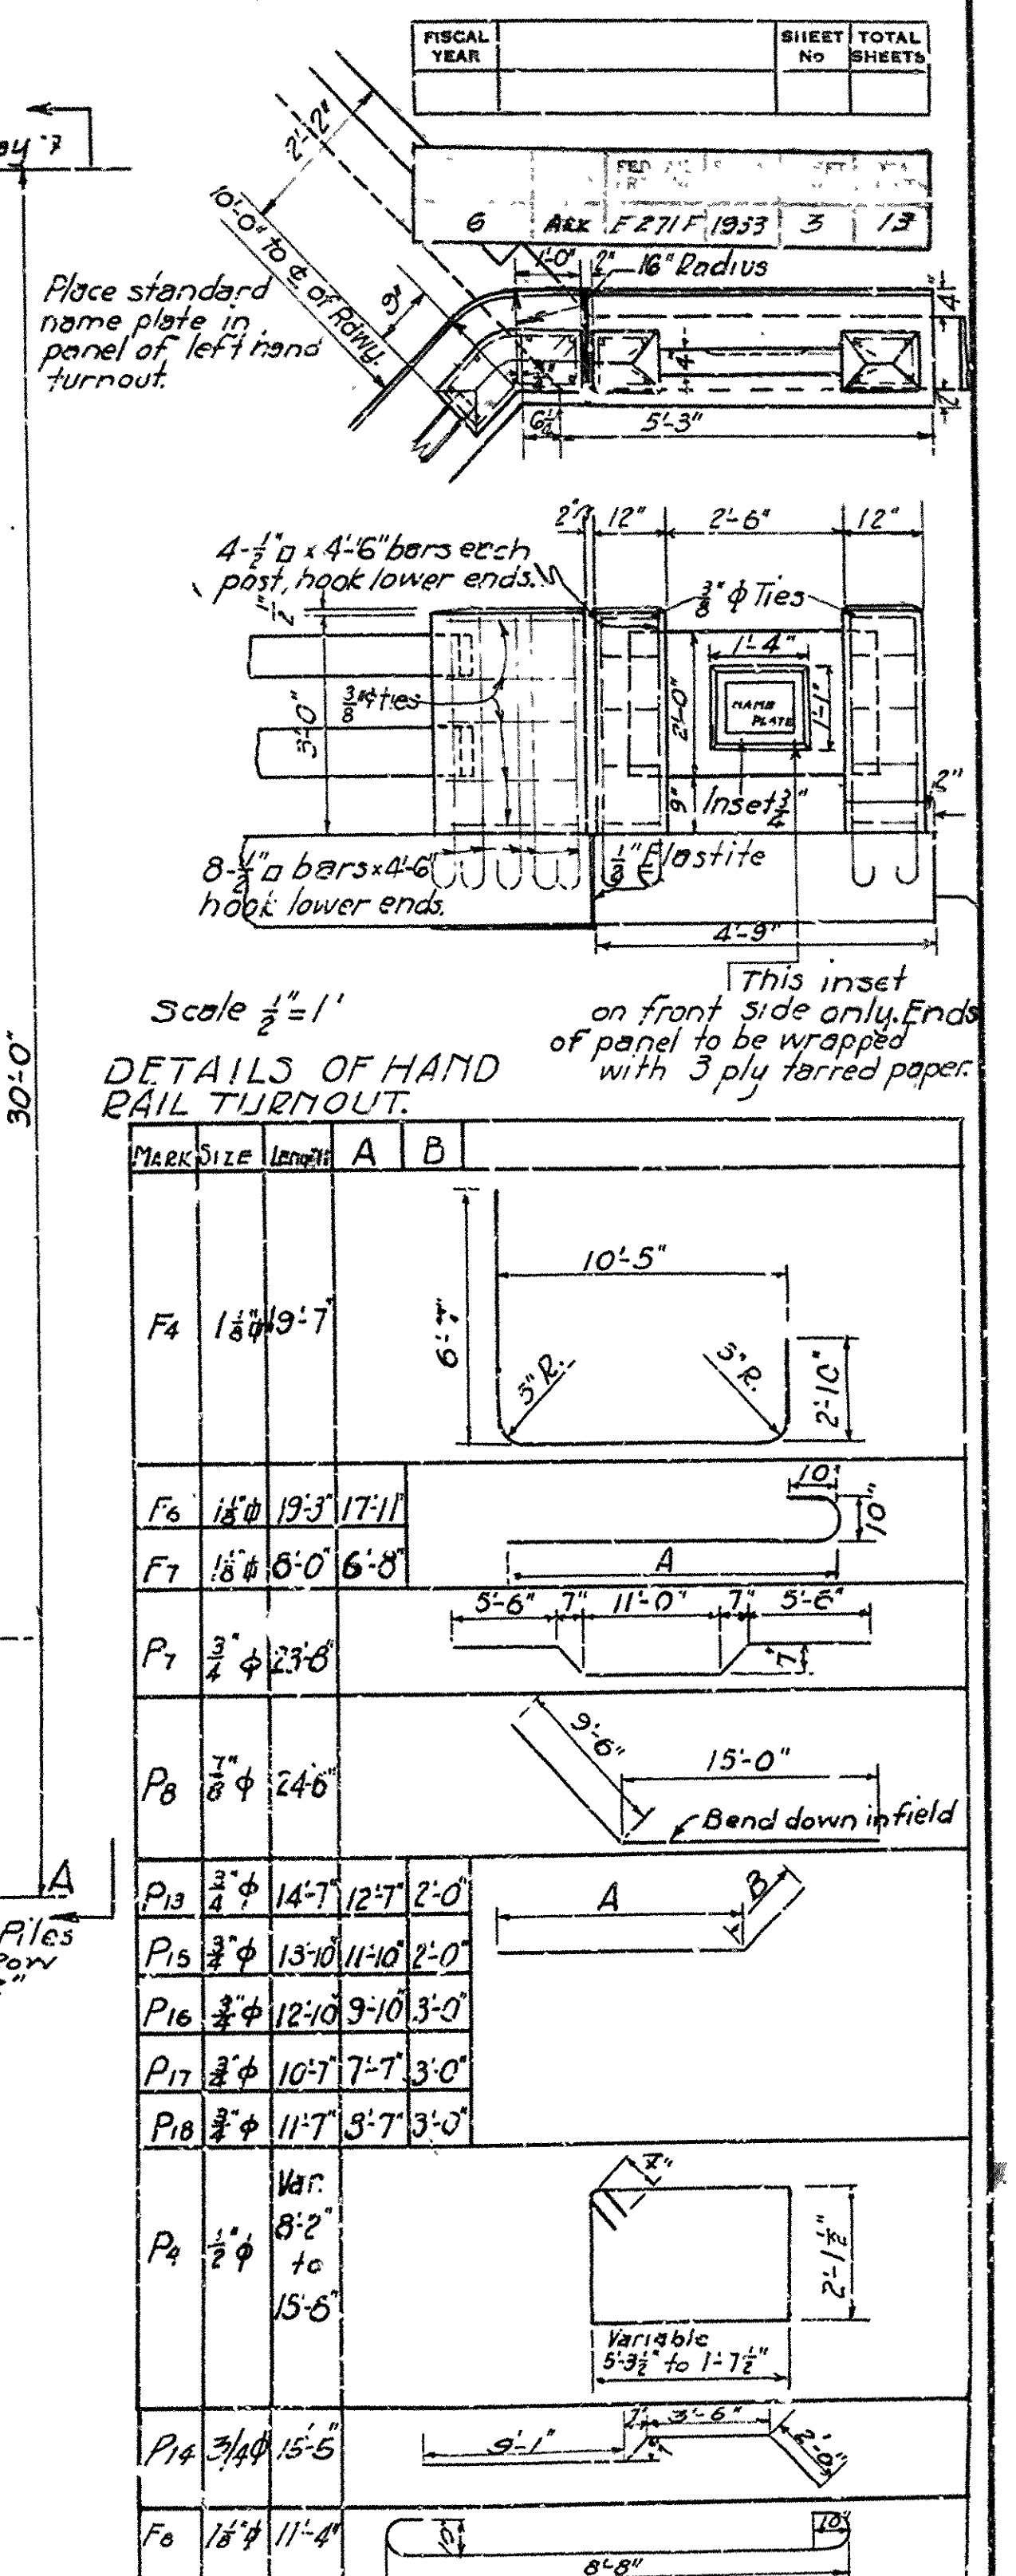 FISCAL YEAR SHEET No TOTAL SHEETS
6 ARK F 271 F 1933 3 13
2'-2"
10'-0" to ℄ of Rdwy.
9"
1'-0" 2" 16" Radius
4"
4"
2"
6¼ 5'-3"
Place standard
name plate in
panel of left hand
turnout.
2" 12" 2'-6" 12"
4-½"□ x 4'-6" bars each
post, hook lower ends.
⅜" ϕ Ties
½"
1'-4"
3'-0"
⅜"ϕ ties
2'-0"
NAME
PLATE
1'-1"
9"
Inset ¾"
2"
8-½"□ bars x 4'-6"
hook lower ends.
Elastite
4'-9"
This inset
on front side only. Ends
of panel to be wrapped
with 3 ply tarred paper.
Scale ½"=1'
DETAILS OF HAND
RAIL TURNOUT.
30'-0"
A
Piles
MARK SIZE Length A B
F4 1⅛"ϕ 19'-7"
10'-5"
6'-7"
3" R. 3" R.
2'-10"
F6 1⅛"ϕ 19'-3" 17'-11"
F7 1⅛"ϕ 8'-0" 6'-8"
10" 10"
A
P7 ¾"ϕ 23'-8"
5'-6" 7" 11'-0" 7" 5'-6"
7"
P8 ⅞"ϕ 24'-6"
9'-6" 15'-0"
Bend down in field
P13 ¾"ϕ 14'-7" 12'-7" 2'-0"
A B
P15 ¾"ϕ 13'-10" 11'-10" 2'-0"
P16 ¾"ϕ 12'-10" 9'-10" 3'-0"
P17 ¾"ϕ 10'-7" 7'-7" 3'-0"
P18 ¾"ϕ 11'-7" 8'-7" 3'-0"
P4 ½"ϕ Var.
8'-2"
to
15'-6"
2'-1½"
Variable
5'-3½" to 1'-7½"
P14 3/4ϕ 15'-5"
9'-1" 7" 3'-6" 2'-0"
7"
F8 1⅛"ϕ 11'-4"
10" 10"
8'-8"